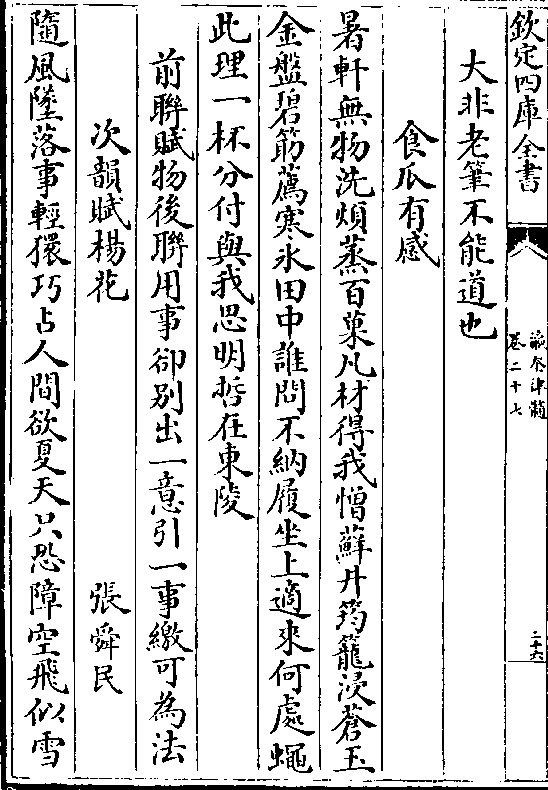 欽定四庫全書
瀛奎律髓
卷二十七
二十六
大非老筆不能道也
食瓜有感
暑軒無物洗煩蒸百菓凡材得我憎蘚井筠籠浸蒼玉
金盤碧筯薦寒氷田中誰問不納履坐上適來何處蠅
此理一杯分付與我思明哲在東陵
前聯賦物後聯用事卻别出一意引一事繳可為法
次韻賦楊花
張舜民
隨風墜落事輕獧巧占人間欲夏天只恐障空飛似雪